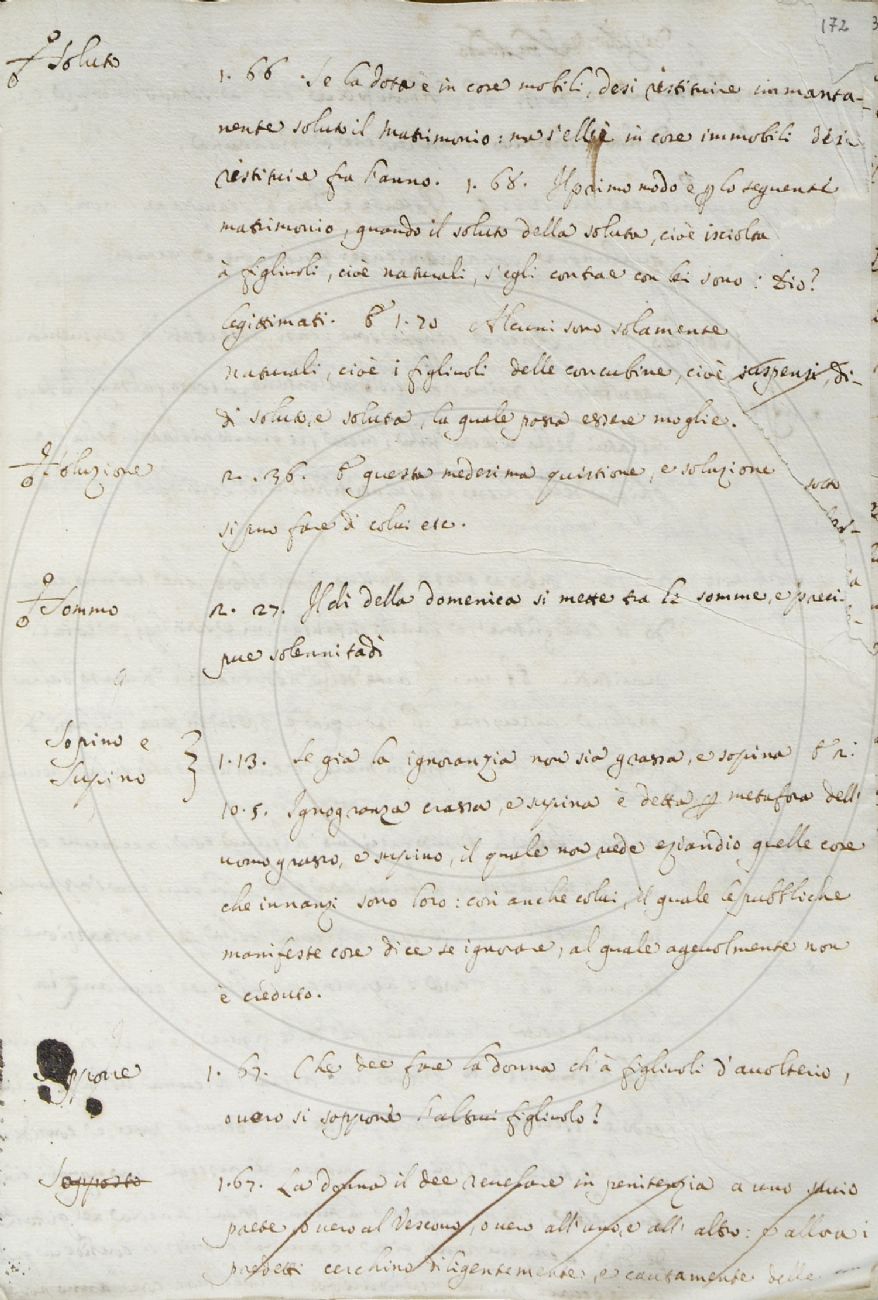 172
Soluto
1. 66. Se la dota è in cose mobili, desi restituire inmanta-
nente soluto il matrimonio: ma s'ell'è in cose immobili desi
restituire fra l'anno. 1. 68. Il primo modo è p lo seguente
matrimonio, quando il soluto della soluta, cioè isciolta
à figliuoli, cioè naturali, s'egli contrae con lei sono: Dio?
legittimati. & 1. 70 Alcuni sono solamente
naturali, cioè i figliuoli delle concubine, cioè suspensi, di-
di soluto, e soluta, la quale possa essere moglie.
Soluzione
2. 36. & questa medesima quistione, e soluzione
si può fare di colui etc.
sotto
Sommo
2. 27. Il dì della domenica si mette tra le somme, e preci
pue solennitadi
Sopino e
Supino
1. 13. Se già la ignoranzia non sia grassa, e sopina & 2.
10. 5. Ignogranza crassa, e supina è detta p metafora dell'
uomo grasso, e supino, il quale non vede eziandio quelle cose
che innanzi sono loro: così anche colui, il quale le pubbliche
manifeste cose dice se ignorare, al quale agevolmente non
è creduto.
1. 67. Che dee fare la donna ch'à figliuoli d'avolterio,
overo si soppone l'altrui figliuolo?
Sopposto
1. 67. La donna il dee revelare in penitenzia a uno savio
prete, overo al Vescovo, overo all'uno, e all'altro: e allora i
predetti cerchino diligentemente, e cautamente delle